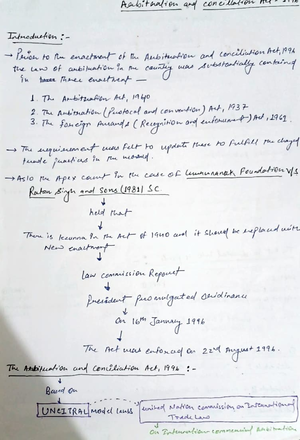 Arbitration and conciliation Act - 1996
Introduction :-
→ Prior to the enactment of the Arbitration and conciliation Act, 1996
the law of arbitration in the country was substantially contained
in three enactment —
1. The Arbitration Act, 1940
2. The Arbitration (Protocol and convention) Act, 1937
3. The Foreign Awards (Recognition and enforcement) Act, 1961
→ The requirement was felt to update these to fulfill the changed
trade practices in the
→ Also the Apex court in the case of Gurunanak Foundation V/s
Rattan Singh and Sons (1981) SC
held that
There is lacunna in the Act of 1940 and it should be replaced with
New enactment
Law commission Report
President promulgated Ordinance
On 16th January 1996
The Act was enforced on 22nd August 1996.
The Arbitration and conciliation Act, 1996 :-
Based on
UNCITRAL model laws
United Nation commission on International
Trade Law
on International commercial Arbitration